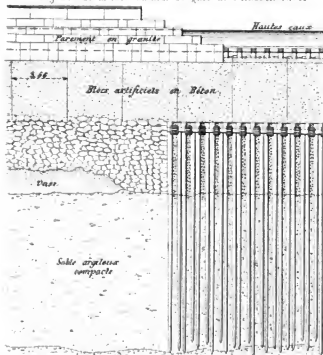 Hautes eaux
Parement en granite
Blocs artificiels en Béton
Vase
Sable argileux
compacte